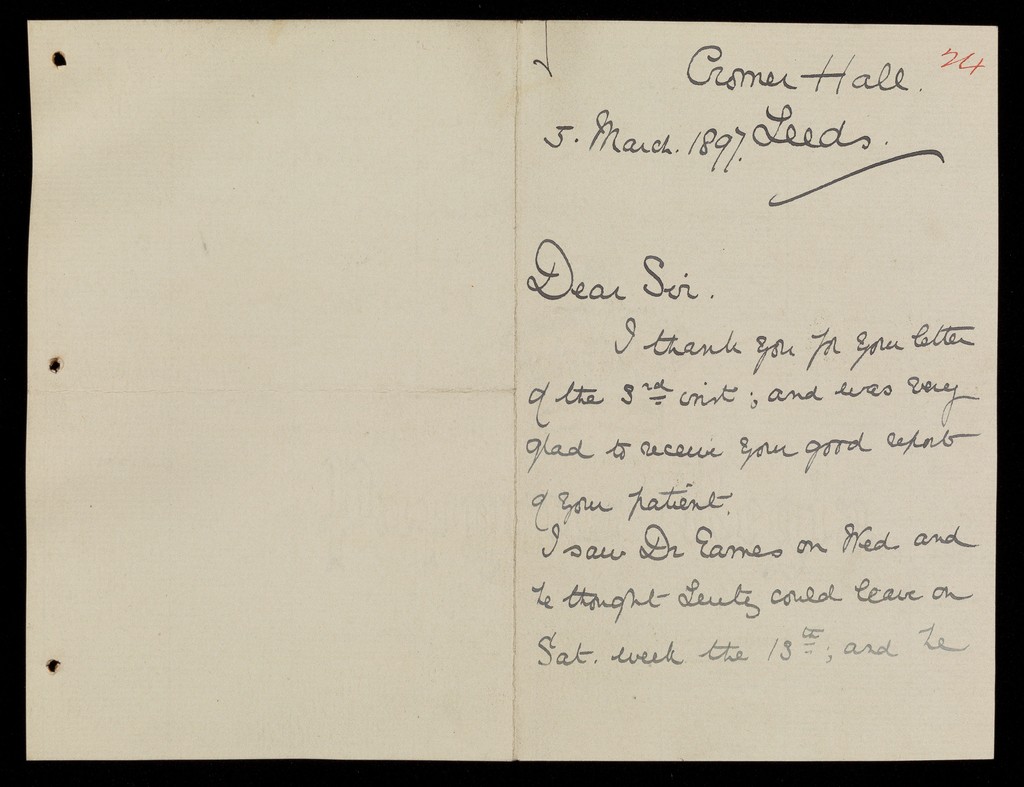 24
Cromer Hall.
Leeds.
5. March. 1897.
Dear Sir.
I thank you for your letter
of the 3rd inst; and was very
glad to receive your good report
of your patient.
I saw Dr Eames on Wed. and
he thought could leave on
Sat. week the 13th; and he